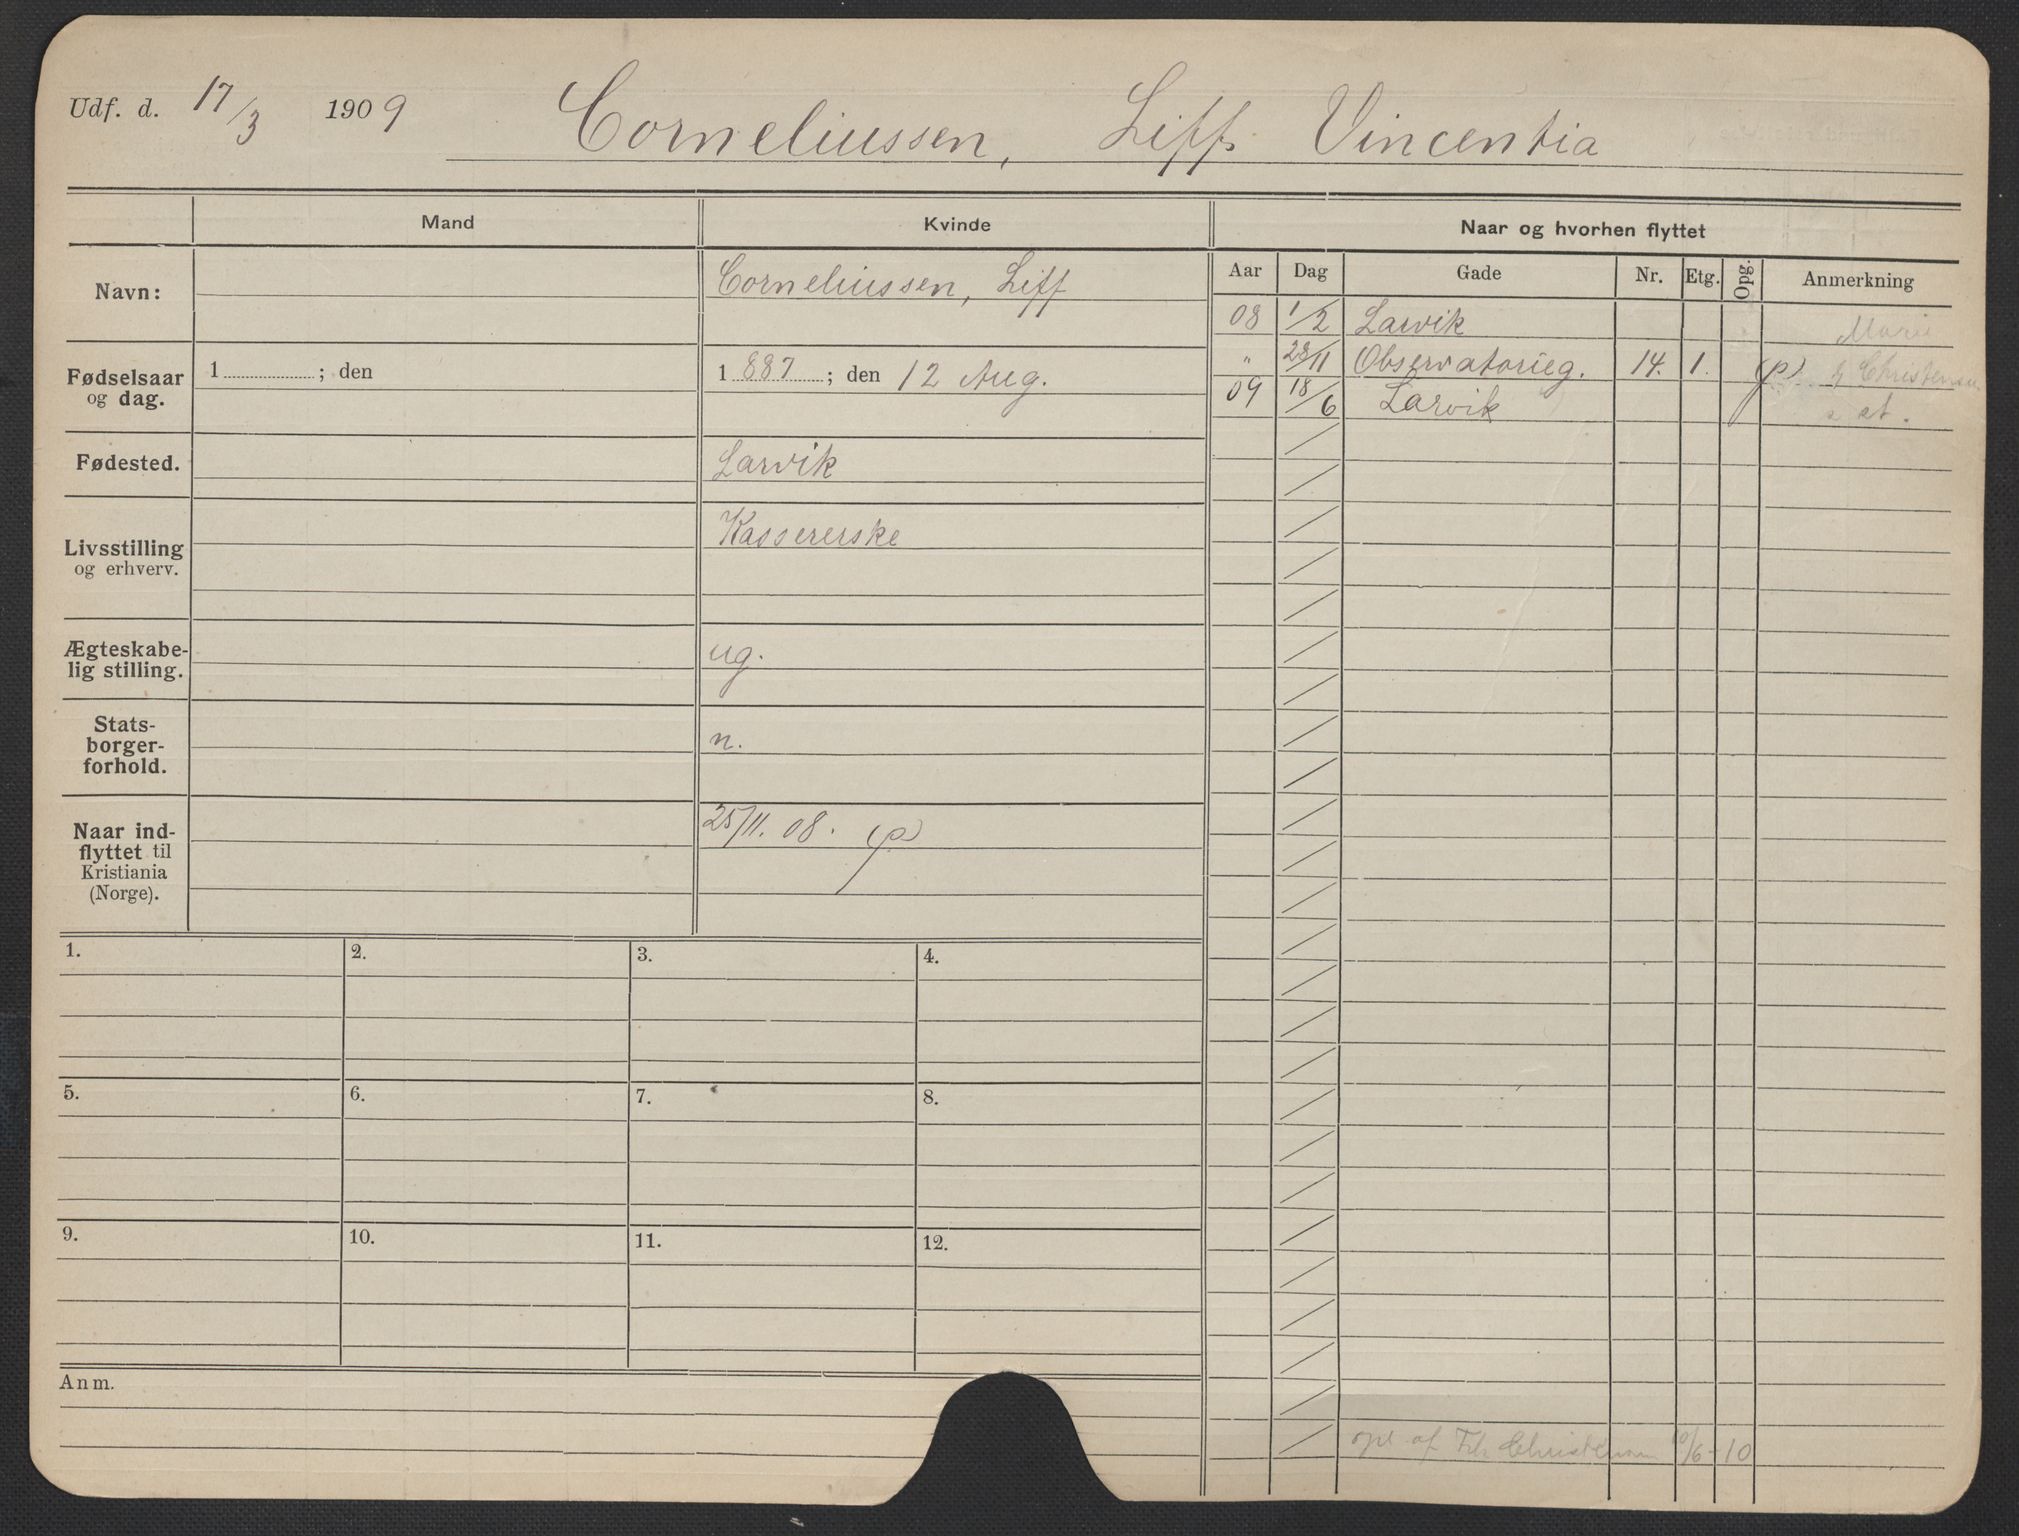 Udf. d. 17/3 1909 Corneliussen, Liff Vincentia
Mand Kvinde Naar og hvorhen flyttet
Aar Dag Gade Nr. Etg. Opg. Anmerkning
Navn: Corneliussen, Liff
08 1/2 Larvik Marie
" 28/11 Observatorieg. 14. 1. (p) Christensen
09 18/6 Larvik
Fødselsaar
og dag.
1 ; den
1887; den 12 Aug.
Fødested. Larvik
Livsstilling
og erhverv.
Kassererske
Ægteskabe-
lig stilling.
ug.
Stats-
borger-
forhold.
n.
Naar ind-
flyttet til
Kristiania
(Norge).
25/11. 08. (p)
1. 2. 3. 4.
5. 6. 7. 8.
9. 10. 11. 12.
Anm.
opl af Frk Christensen 10/6-10